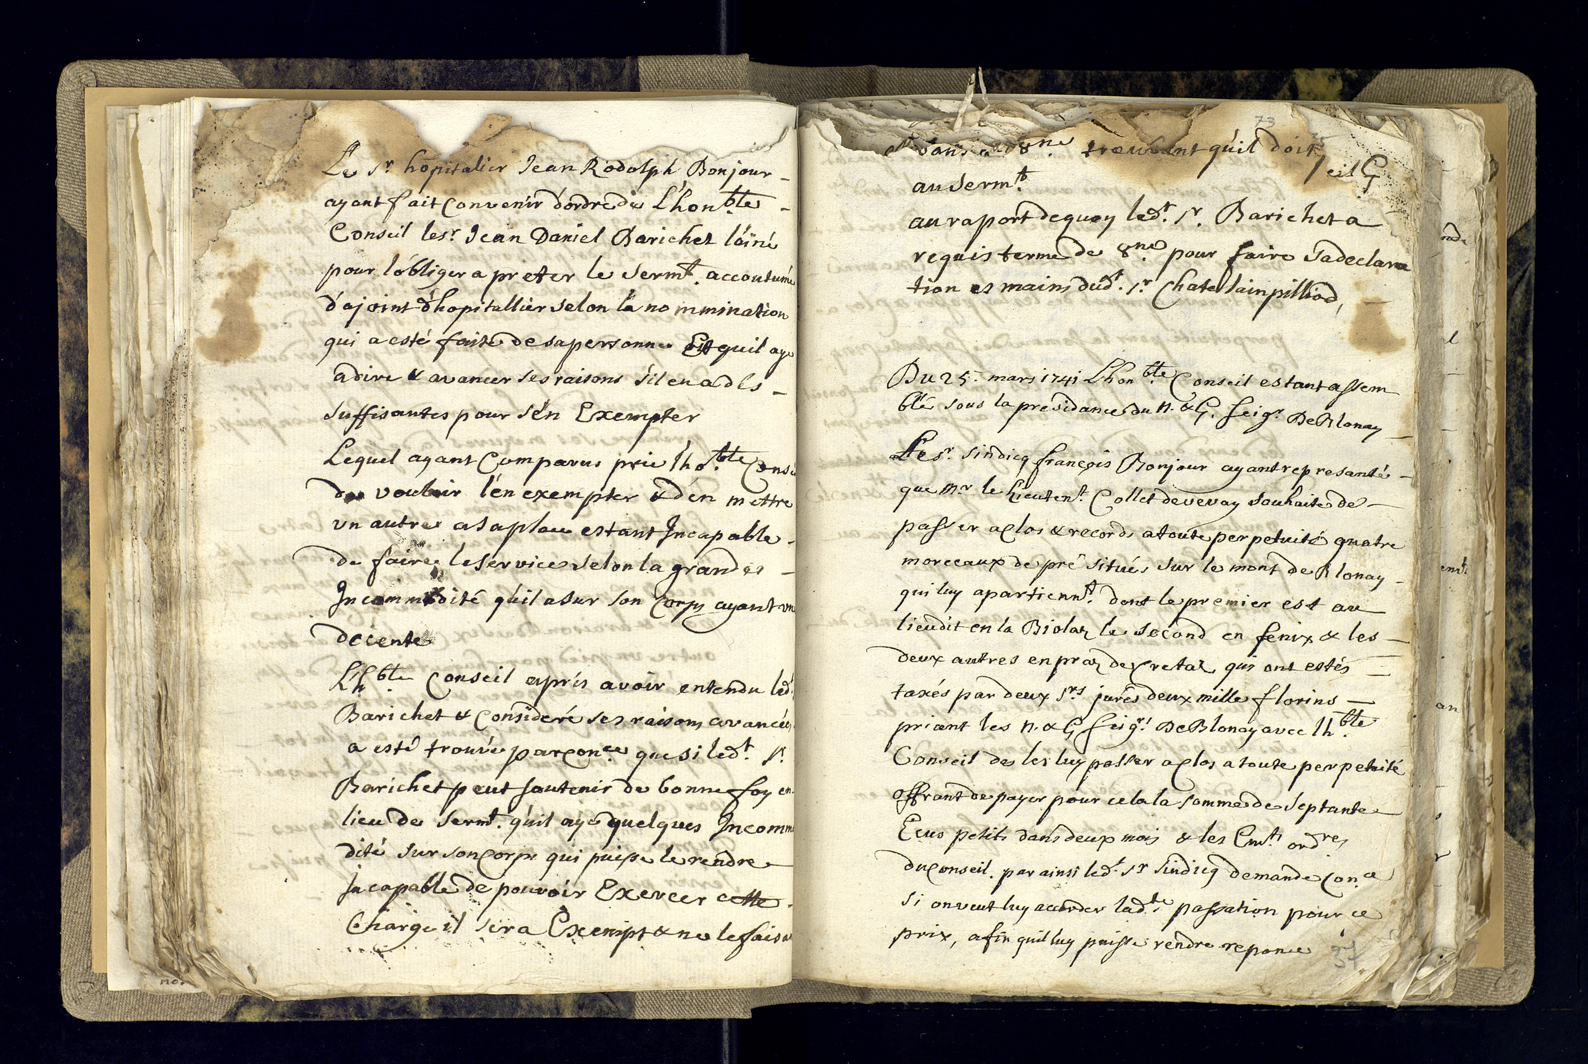 Le Sr. hopitalier Jean Rodolph Bonjour
ayant fait Convenir d'ordre de L'honble
Conseil le Sr. Jean Daniel Barichet l'ainé
pour l'obliger a preter le Sermt. accoutumé
d'ajoint d'hopitallier selon la nommination
qui a esté faite de sa personne Et quil aye
a dire & avancer ses raisons S'il en a des
suffisantes pour s'en Exempter
Lequel ayant Comparus prie lhoble Conse
de vouloir l'en exempter & d'en mettre
vn autre a sa place estant Incapable
de faire le Service selon la grande
Incommodité qu'il a sur son Corps ayant vne
decente
L'hble Conseil apris avoir entendu led.
Barichet & Consideré ses raisons avancées
a esté trouvé par Conce que si ledt. Sr.
Barichet peut soutenir de bonne foy en
lieu de Sermt. qu'il aye quelques Incomm
dité sur son Corps qui puisse le rendre
Incapable de pouvoir Exercer cette
Charge il sera Exempt & ne le fais
73
dans 8ne trouvant qu'il doit
au Sermt.
au raport de quoy ledt. Sr. Barichet a
requis terme de 8ne pour faire Sa declara
tion es mains dudt. Sr. Chatelain pilliod,
Du 25e. mars 1741 L'honble Conseil estant assem
blé sous la presidance du N. & G. Seigr. De Blonay
Le Sr. Sindicq françois Bonjour ayant representé
que Mr. le Lieutent. Collet de vevay souhaite de
passer a clos & records a toute perpetuité quatre
morceaux de pré situés sur le mont de Blonay
qui luy apartiennt. dont le premier est au
lieu dit en la Biolaz le second en fenix & les
deux autres en praz de Cretaz qui ont estés
taxés par deux Srs. jurés deux mille florins
priant les N. & G. Seigrs. De Blonay avec lhble
Conseil de les luy passer a clos a toute perpetuité
offrant de payer pour cela la somme de septante
Ecus petits dans deux mois & les Emts. ondres
du Conseil. par ainsi ledt. Sr. Sindicq demande Conce
si on veut luy acorder ladte. passation pour ce
prix, afin quil luy puisse rendre reponce
37